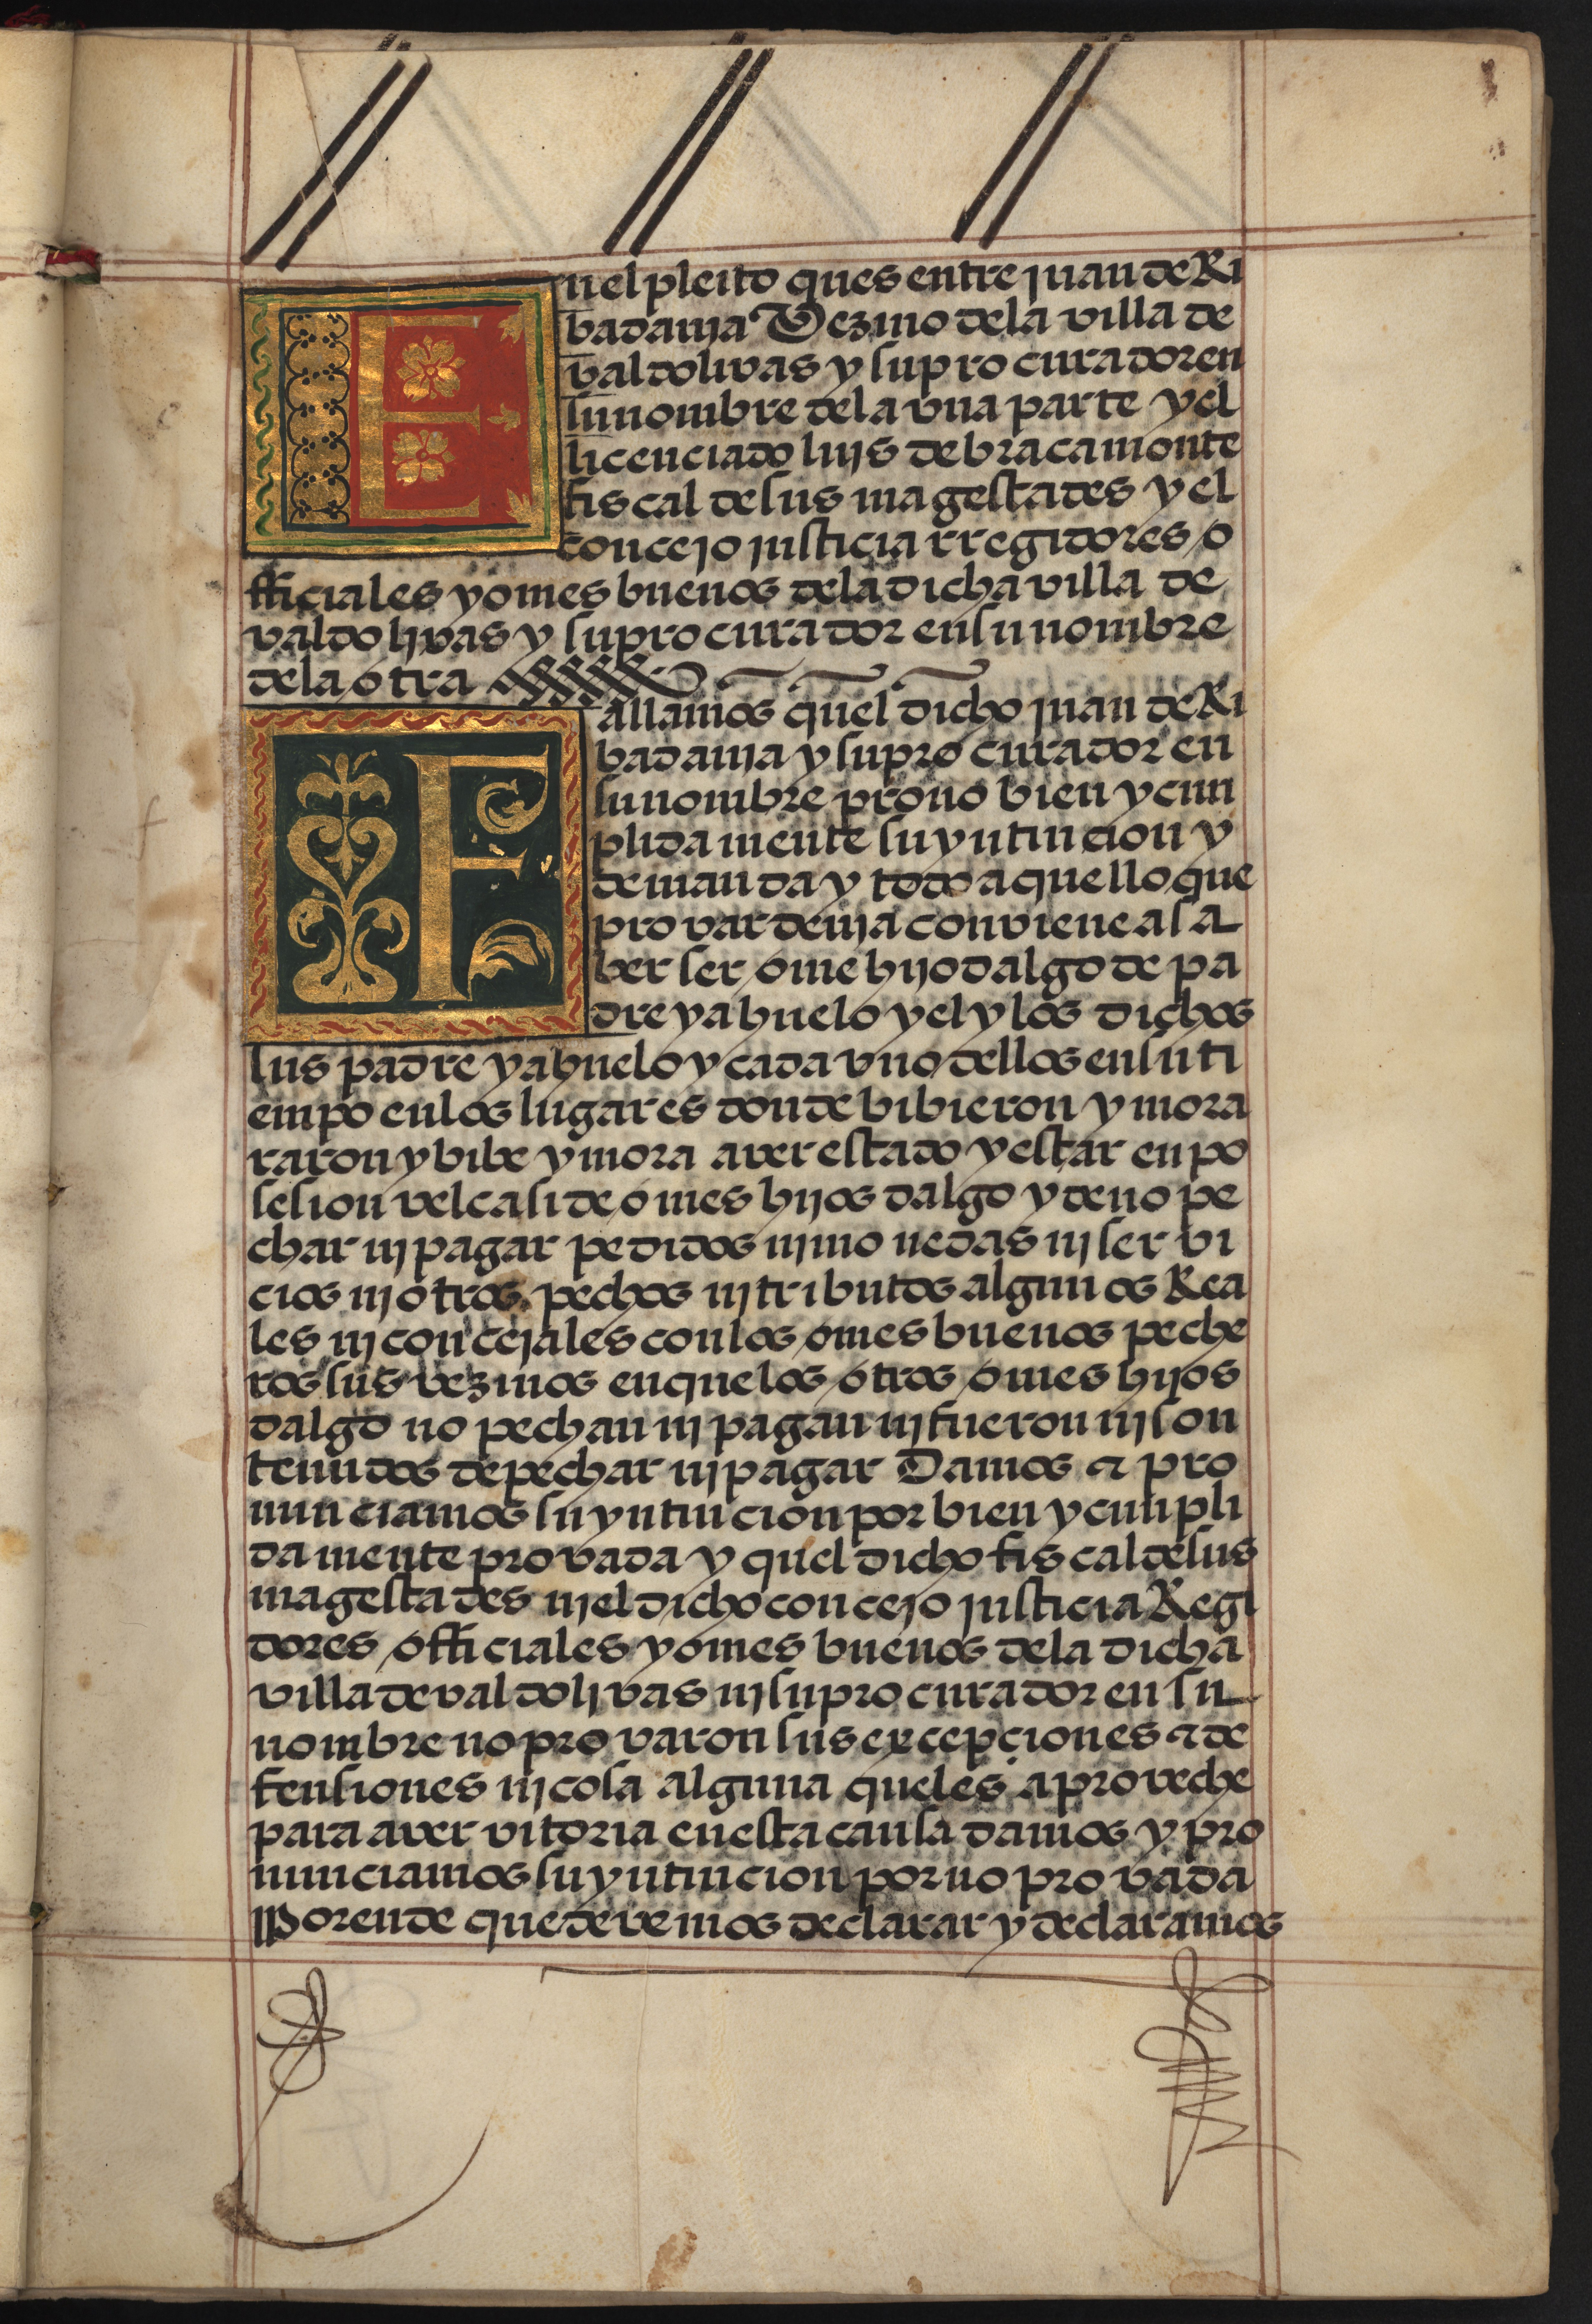 En el pleito ques entre juan de Ri
badania Vezino dela villa de
valdolivas y su procurador en
su nombre dela vna parte y el
licenciado luys de bracamonte
fiscal de sus magestades y el
concejo justicia rregidores o
fficiales y omes buenos dela dicha villa de
valdolivas y su procurador en su nombre
dela otra
Fallamos quel dicho juan de Ri
badania y su procurador en
su nombre provo bien y cun
plidamente su yntincion y
demanda y todo aquello que
provar devia conviene a sa
ber ser ome hijodalgo de pa
dre y abuelo y el y los dichos
sus padre y abuelo y cada vno dellos en su ti
empo en los lugares donde bibieron y mora
raron y bibe y mora aver estado y estar en po
sesion vel casi de omes hijos dalgo y de no pe
char ni pagar pedidos ni monedas ni servi
cios ni otros pechos ni tributos algunos Rea
les ni concejales con los omes buenos peche
ros sus vezinos en que los otros omes hijos
dalgo no pechan ni pagan ni fueron ni son
tenudos de pechar ni pagar Damos & pro
nunciamos su yntincion por bien y cunpli
damente provada y quel dicho fiscal de sus
magestades ni el dicho concejo justicia Regi
dores officiales y omes buenos dela dicha
villa de valdolivas ni su procurador en su
nombre no provaron sus exepciones & de
fensiones ni cosa alguna queles aproveche
para aver vitoria en esta causa damos y pro
nunciamos su yntincion por no provada
Porende que devemos declarar y declaramos